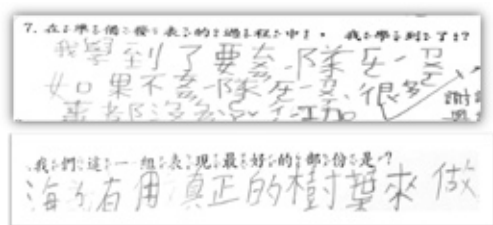 7. 在準備發表的過程中,我學到了?
我學到了要合隊在一起
如果不合隊在一起很多
事都沒
我們這一組表現最好的部份是?
海 有用真正的樹葉來做